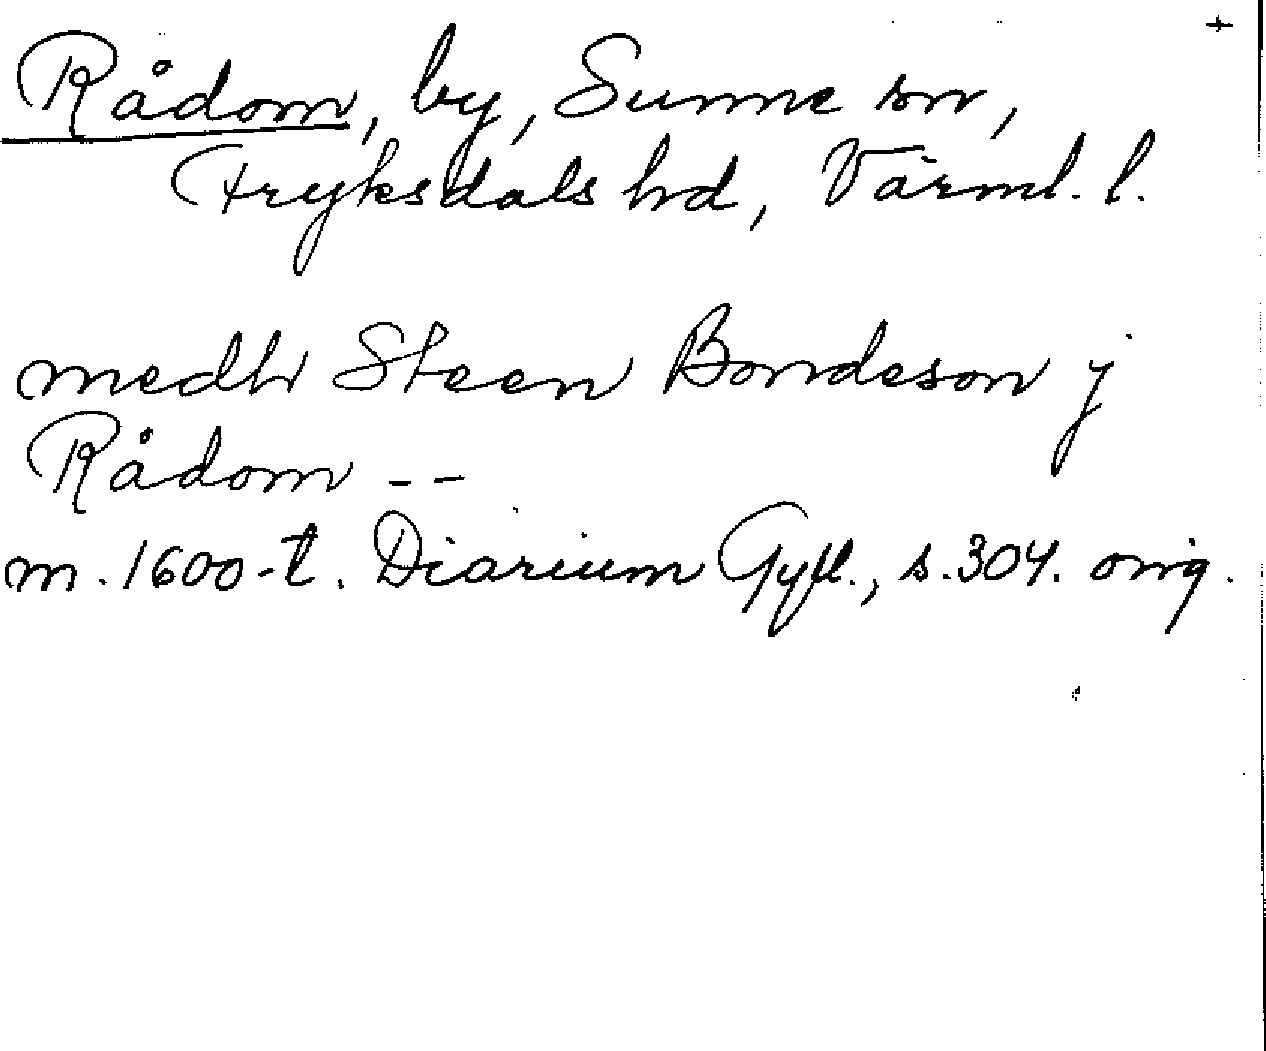 +
Rådom, by, Sunne sn,
Fryksdals hd, Värml. l.
medh Steen Bondeson j
Rådom --
m. 1600-t. Diarium Gyll., s. 304. orig.